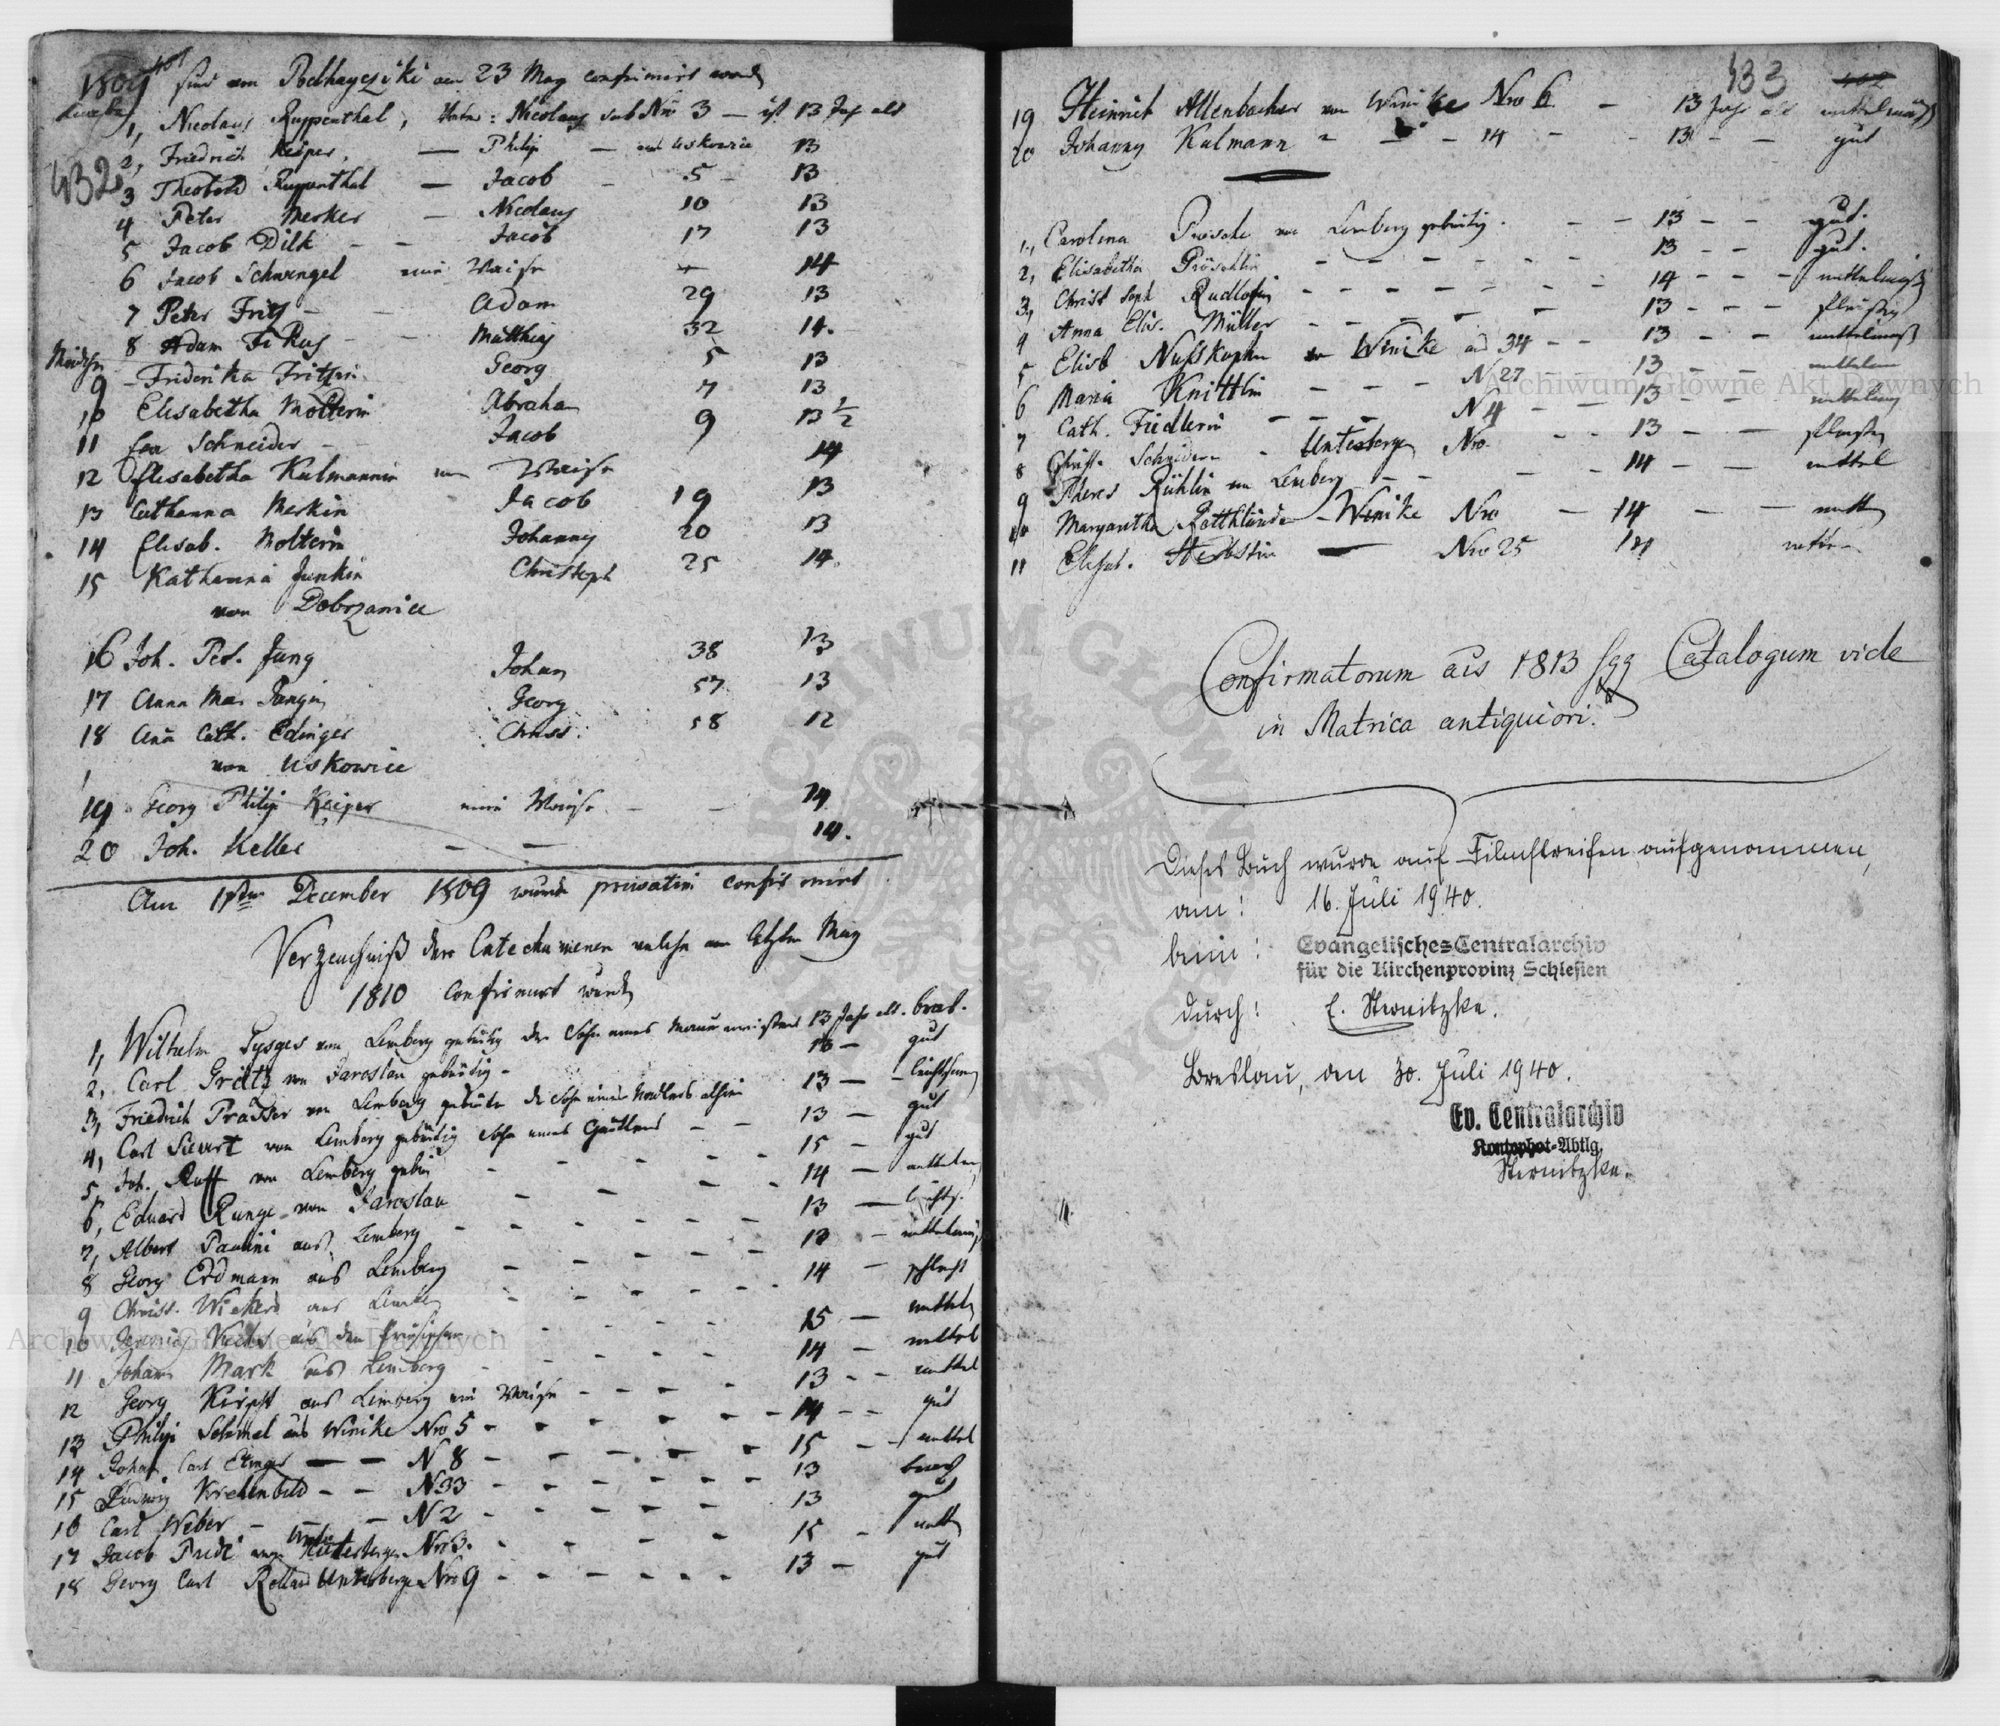 401
1809 sind von Podhayczіki am 23 May confirmirt word
Knaben
432
1, Nicolaus Ruppenthal, Vater: Nicolaus sub Nro 3 — ist 13 Jahr alt
2, Friedrich Keiper, — Philip — aus Uskowice 13
3 Theobald Ruppenthal — Jacob — 5 — 13
4 Peter Merker — Nicolaus 10 13
5 Jacob Dilk — — Jacob 17 13
6 Jacob Schwengel eine Waise + 14
7 Peter Fritz — — Adam 29 13
8 Adam Fikus — — Matthias 32 14.
Mädchen
9 Friderika Fritzin Georg 5 13
10 Elisabetha Molterin Abraham 7 13
11 Eva Schneider — — Jacob 9 13 1/2
12 Elisabetha Kulmannin eine Waise 14
13 Catharina Merkin Jacob 19 13
14 Elisab. Molterin Johannes 20 13
15 Katharina Junkin Christoph 25 14.
von Dobrzanice
16 Joh. Pet. Jung Johan 38 13
17 Anna Mar. Jungin Georg 57 13
18 Ana Cath. Edinger Christ. 58 12
von Uskowice
19 Georg Philip Keiper eine Waise — — 14
20 Joh. Keller — — 14.
Am 17ten December 1809 wurde privatim confirmirt
Verzeichniß derer Catechumenen welche am letzten May
1810 confirmirt wurden
1, Wilhelm Sysges von Lemberg gebürtig der Sohn eines Mauermeisters 13 Jahr alt. brav.
2, Carl Grätz von Jaroslau gebürtig — 13 — gut
3, Friedrich Prasser von Lemberg gebürtig der Sohn eines 13 — leichtsinnig
4, Carl Sievert von Lemberg gebürtig Sohn eines — — 13 — gut
5, Joh. Ruff von Lemberg gebür — — — 15 — gut
6, Eduard Runge von Jaroslau — — — 14 — mittelm
7, Albert Paulini aus Lemberg — — — 13 — leichts.
8 Georg Erdmann aus Lemberg — — — 13 — mittelmäß
9 Christ. Wickerd aus Lemberg — — — 14 — schlecht
10 aus den — — — 15 — mittel
11 Johann Mark aus Lemberg — — — 14 — mittel
12 Georg Kirpst aus Lemberg eine Waise — — — 13 — — mittel
13 Philip Schmal aus Winike Nro 5 — — — 14 — — gut
14 Johan Carl Etinger — — N 8 — — — 15 — — mittel
15 Ludwig Krehenbild — — N 33 — — — 13 brav
16 Carl Weber — — — N 2 — — — 13 gut
17 Jacob Pride von Unterbergen Nro 3. — — — 15 — mittel
18 Georg Carl Rolland Unterbergen Nro 9 — — — 13 — gut
433 402
19 Heinrich Allenbacher von Winike Nro 6 — 13 Jahr alt mittelmäß
20 Johannes Kulmann — — — 14 — — 13 — — gut
1, Carolina Prösche von Lemberg gebürtig. — — 13 — — gut.
2, Elisabetha Pröschlin — — — 13 — — gut.
3, Christ Soph Rudlofin — — — 14 — — — mittelmäß
4 Anna Elis. Müller — — — 13 — — — fleißig
5 Elisb Nusskopfin von Winike ad 34 — — 13 — — mittelmäß
6 Maria Knittlin — — — N 27 13 — — mittelm
7 Cath. Fiedlerin — — — N 4 — — 13 — — mittelmäß
8 Christ. Schneidern — Unterbergen Nro. — — 13 — — fleißig
9 Theres Rühlin von Lemberg — — — 14 — — mittel
10 Margaretha Rotthländer — Winike Nro — 14 — — mittel
11 Elisab. Herbstin — Nro 25 14 mittel
Confirmatorum ais 1813 sqq Catalogum vide
in Matrica antiquiori.
Dieses Buch wurde auf Filmstreifen aufgenommen,
am: 16. Juli 1940.
beim: Evangelisches Centralarchiv
für die Kirchenprovinz Schlesien
durch: E. Sternitzke.
Breslau, am 30. Juli 1940.
Ev. Centralarchiv
Kontophot-Abtlg.
Sternitzke.
Archiwum Główne Akt Dawnych
Archiwum Główne Akt Dawnych
ARCHIWUM GŁÓWNE